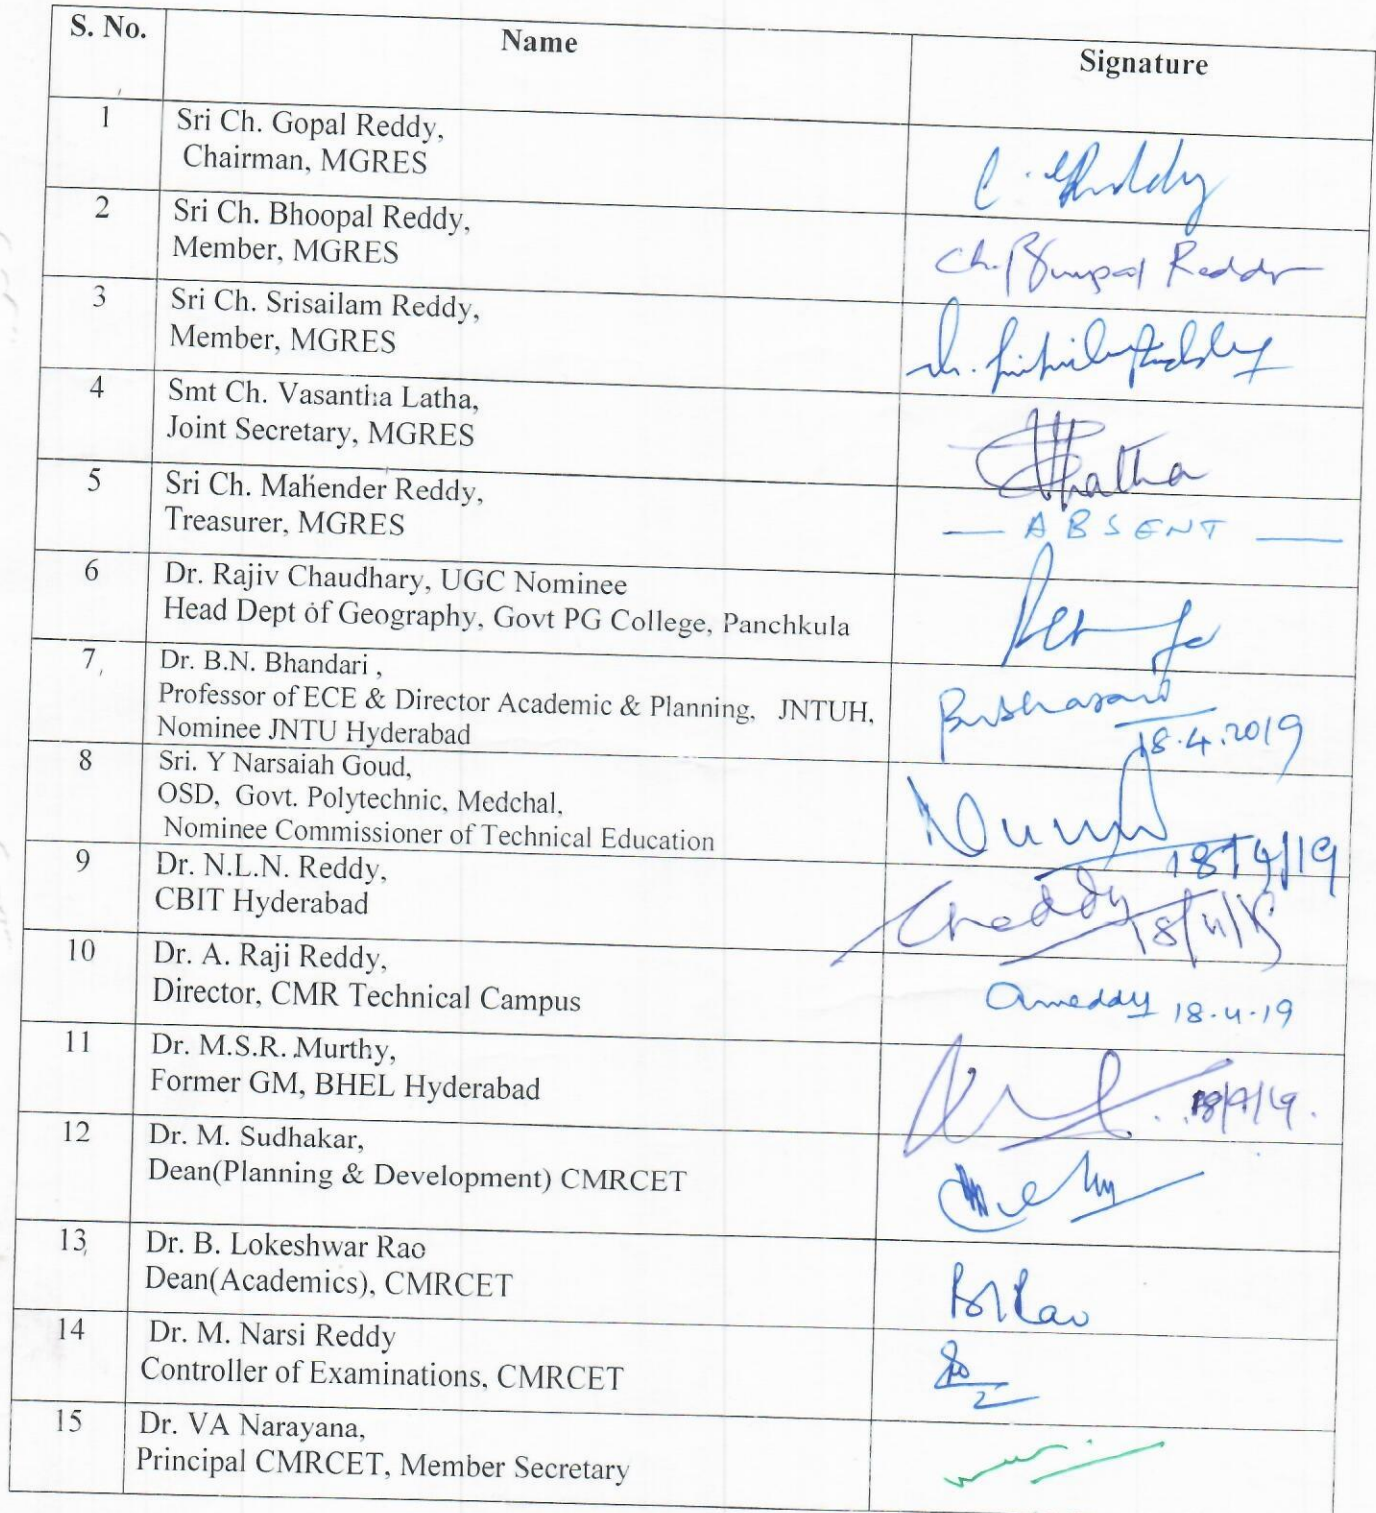 S. No. Name Signature
1 Sri Ch. Gopal Reddy,
Chairman, MGRES
2 Sri Ch. Bhoopal Reddy,
Member, MGRES
Ch. Bhoopal Reddy
3 Sri Ch. Srisailam Reddy,
Member, MGRES
4 Smt Ch. Vasantha Latha,
Joint Secretary, MGRES
5 Sri Ch. Mahender Reddy,
Treasurer, MGRES
— ABSENT —
6 Dr. Rajiv Chaudhary, UGC Nominee
Head Dept of Geography, Govt PG College, Panchkula
7 Dr. B.N. Bhandari ,
Professor of ECE & Director Academic & Planning, JNTUH,
Nominee JNTU Hyderabad
18.4.2019
8 Sri. Y Narsaiah Goud,
OSD, Govt. Polytechnic, Medchal,
Nominee Commissioner of Technical Education
18/4/19
9 Dr. N.L.N. Reddy,
CBIT Hyderabad
10 Dr. A. Raji Reddy,
Director, CMR Technical Campus
18.4.19
11 Dr. M.S.R. Murthy,
Former GM, BHEL Hyderabad
18/4/19.
12 Dr. M. Sudhakar,
Dean(Planning & Development) CMRCET
13 Dr. B. Lokeshwar Rao
Dean(Academics), CMRCET
14 Dr. M. Narsi Reddy
Controller of Examinations, CMRCET
15 Dr. VA Narayana,
Principal CMRCET, Member Secretary